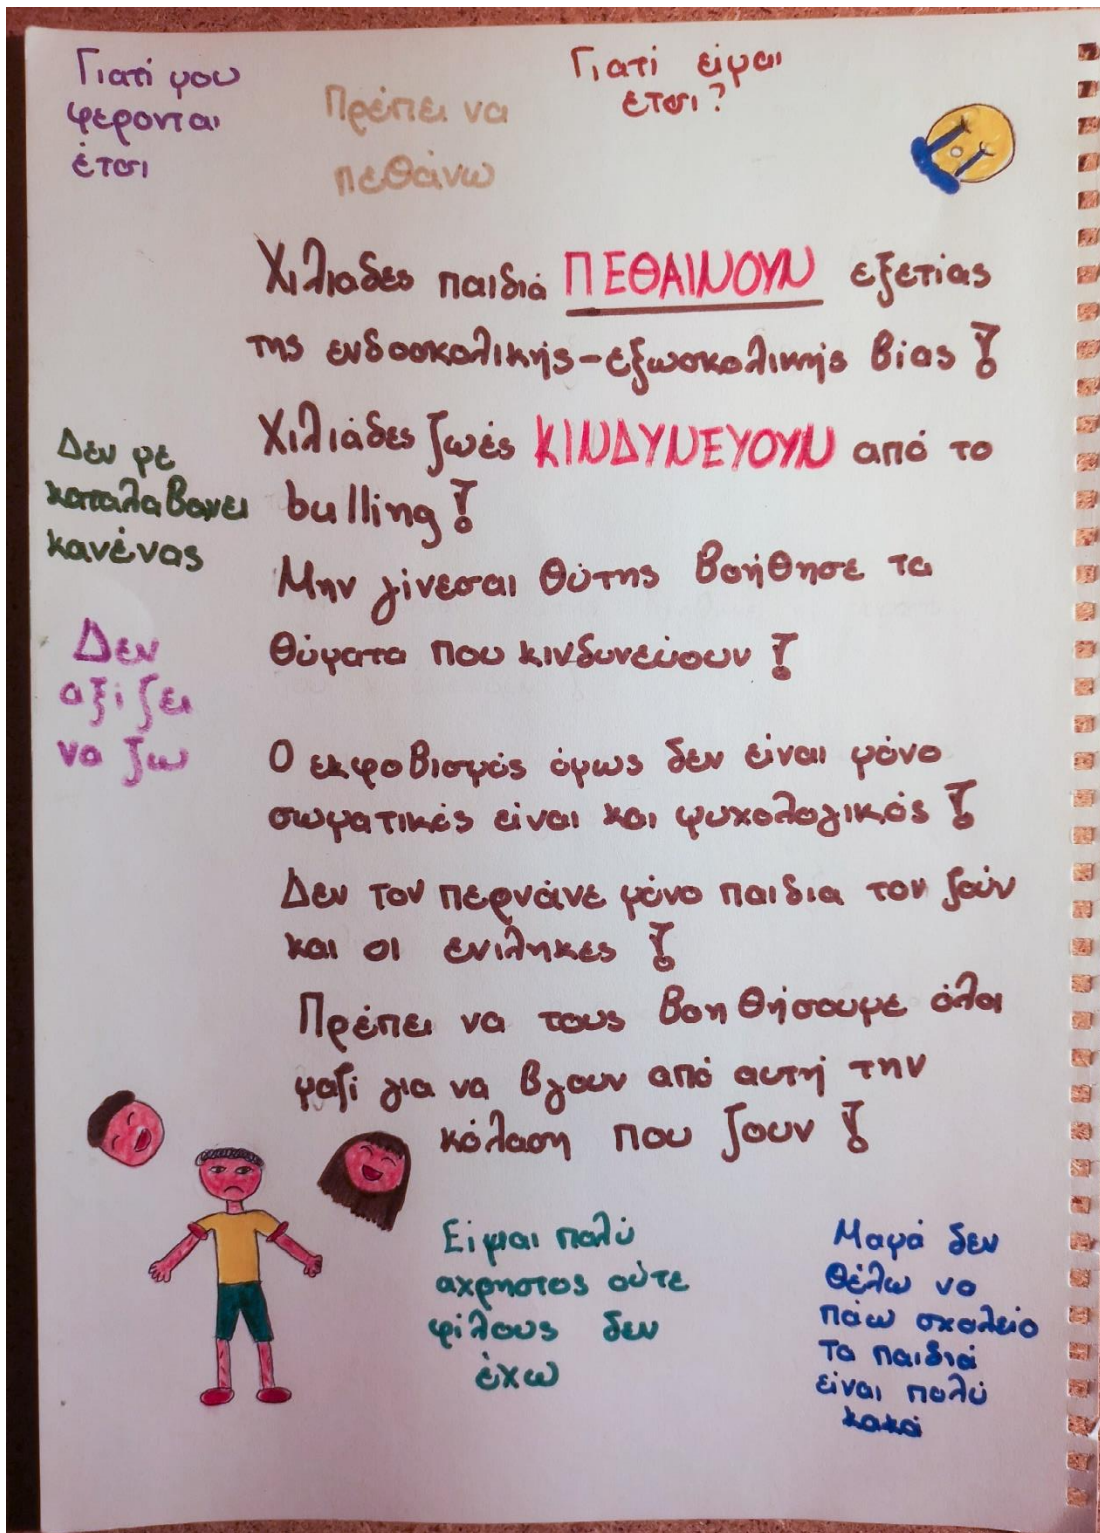 Γιατί μου
φερονται
έτσι
Πρέπει να
πεθάνω
Γιατί είμαι
ετσι?
Χιλιαδες παιδιά ΠΕΘΑΙΝΟΥΝ εξετίας
της ενδοσκολικής-εξωσκολικής βίας!
Χιλιάδες ζωές ΚΙΝΔΥΝΕΥΟΥΝ από το
bulling!
Μην γίνεσαι θύτης βοήθησε τα
θύματα που κινδυνεύουν!
Δεν με
καταλαβαινει
κανένας
Δεν
αξίζει
να ζω
Ο εκφοβισμός όμως δεν είναι μόνο
σωματικός είναι και ψυχολογικός!
Δεν τον περνάνε μόνο παιδια τον ζούν
και οι ενιληκες!
Πρέπει να τους βοηθήσουμε όλοι
μαζί για να βγουν από αυτή την
κόλαση που ζουν!
Είμαι πολύ
αχρηστος ούτε
φίλους δεν
έχω
Μαμά δεν
θέλω να
πάω σχολείο
Τα παιδιά
είναι πολύ
κακά